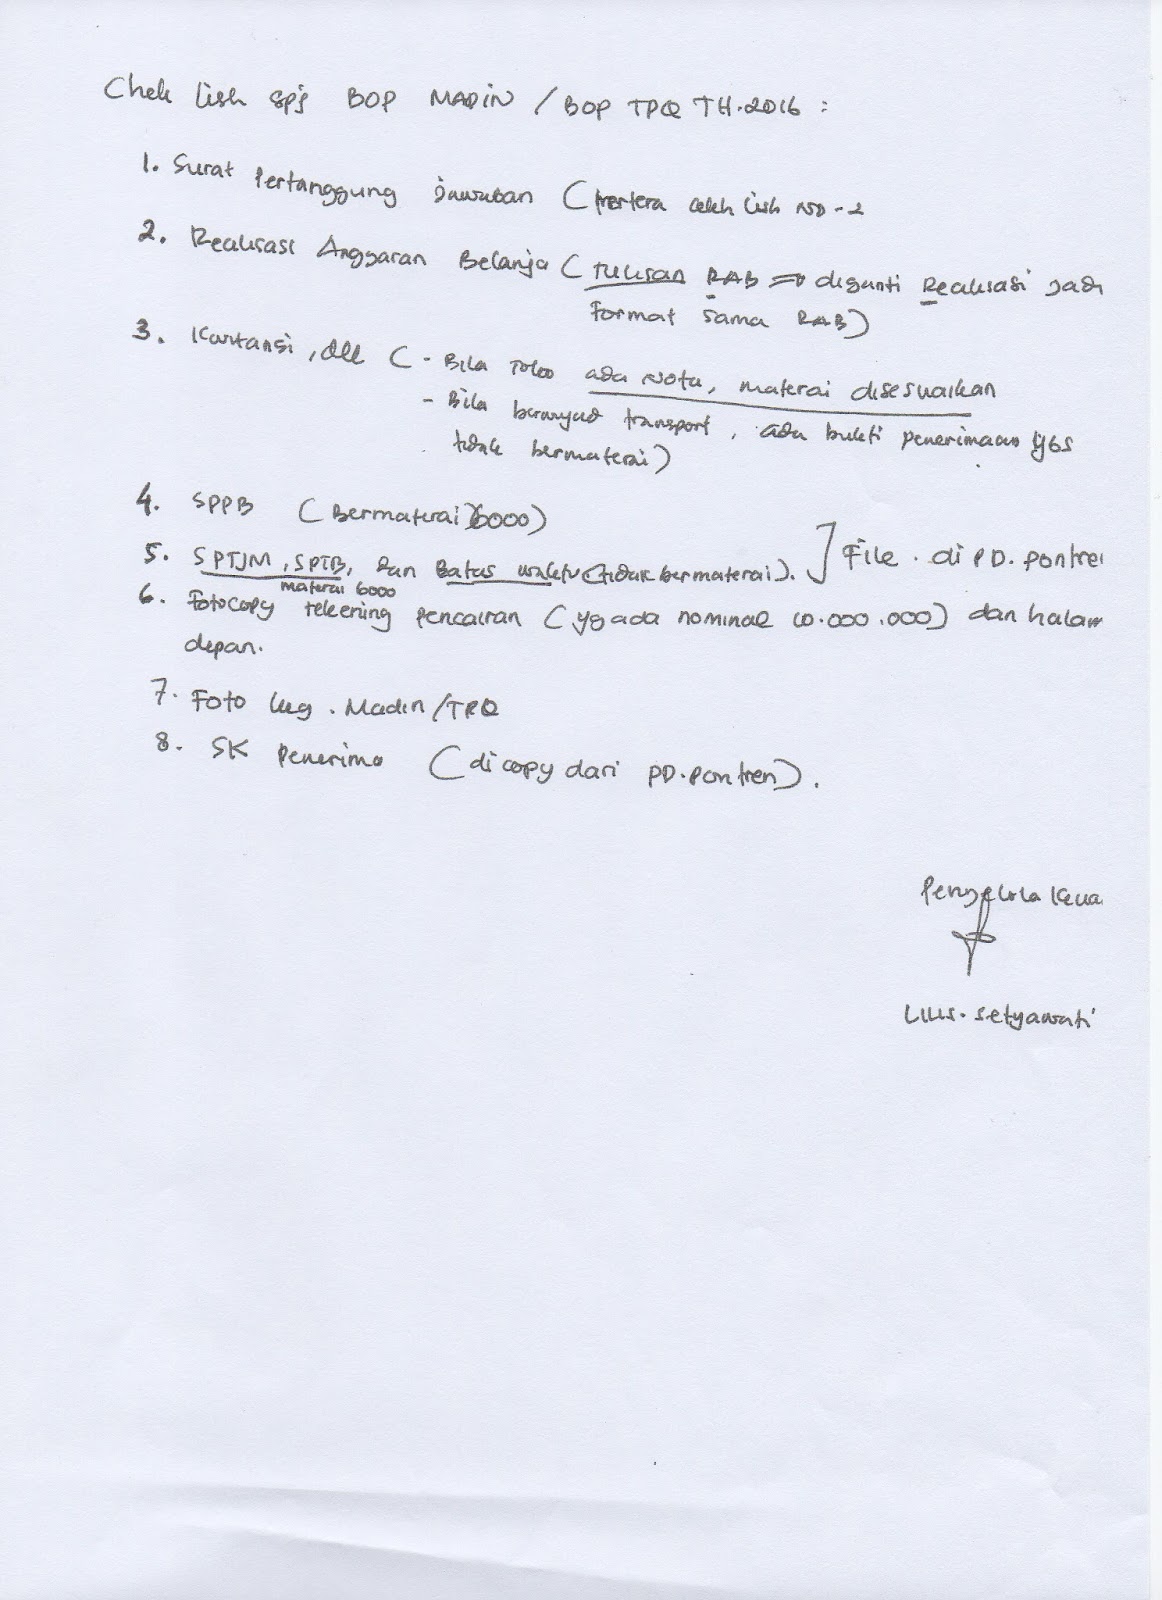 Chek list spj BOP MADIN / BOP TPQ TH.2016 :
1. Surat Pertanggung jawaban ( tertera cekh list NO-2
2. Realisasi Anggaran Belanja ( tulisan RAB => diganti Realisasi jadi
format sama RAB)
3. Kwitansi, dll ( - Bila toko ada nota, materai disesuaikan
- Bila berwujud transport, ada bukti penerimaan yGS
tidak bermaterai)
4. SPPB ( Bermaterai 6000)
5. SPTJM, SPTB, dan Batas waktu (tidak bermaterai). ] File . di PD. pontre
materai 6000
6. Fotocopy rekening pencairan ( yg ada nominal 10.000.000) dan halam
depan.
7. Foto keg. Madin/TPQ
8. SK penerima ( di copy dari PD.pontren).
Pengelola Keua
Lilis. Setyawati